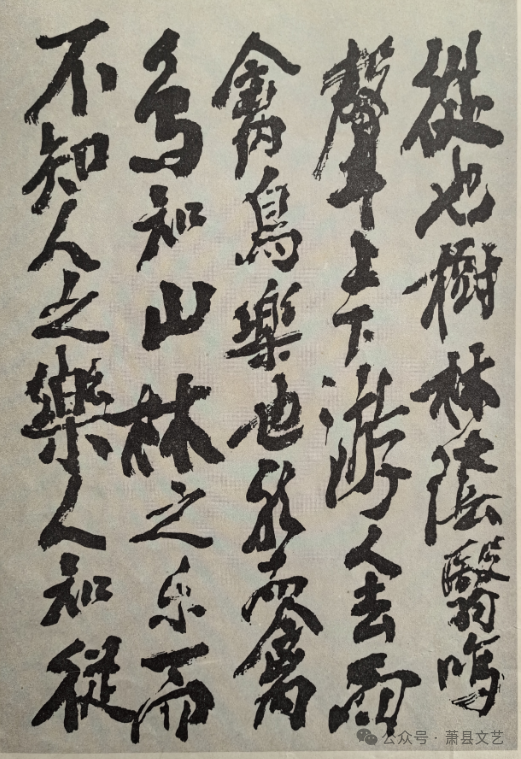 從也樹林陰翳鳴
聲上下游人去而
禽鳥樂也然而禽
鳥知山林之乐而
不知人之樂人知從
公众号 · 萧县文艺